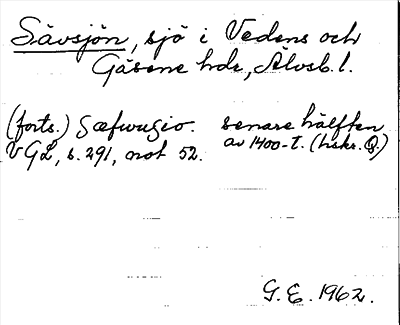 Sävsjön, sjö i Vedens och
Gäsene hdr, Älvsb. l.
(forts.) Sæfwusio. senare hälften
VGL, s. 291, not 52. av 1400-t. (hskr. Q.)
G. E. 1962.